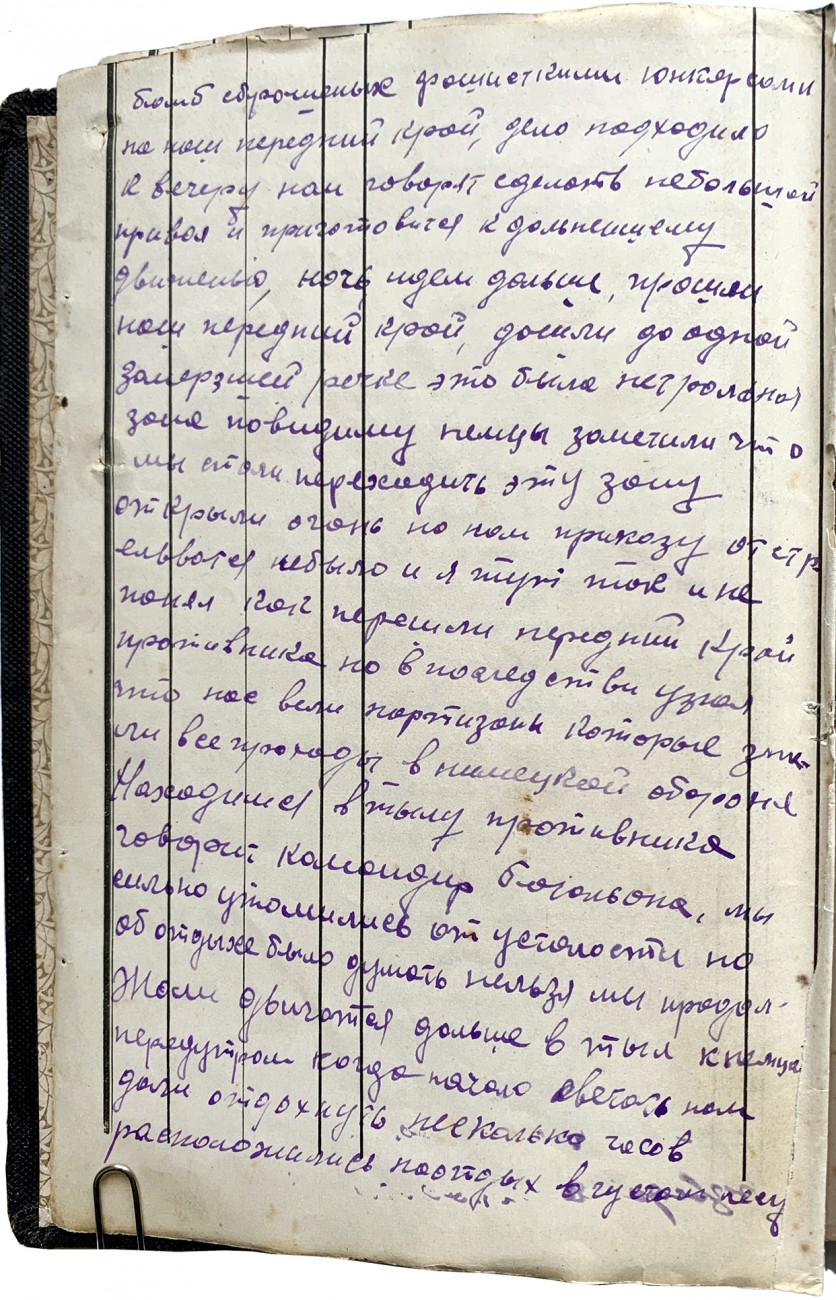 бомб сброшеных фашисткими юнкерсами
на наш передний край, дело подходило
к вечеру нам говорят сделать небольшой
привал и приготовится к дальнешему
движенью, ночь идем дальше, прошли
наш передний край, дошли до одной
замерзшей речке это была нетролоная
зона повидиму немцы заметили что
мы стали переходить эту зону
открыли огонь по нам приказу отстр
елвватся небыло и я тут так и не
понял как перешли передний край
противника но в последствии узнал
что нас вели партизаны которые зна-
ли все проходы в нимецкой обороне
Находимся втылу противника
говорит командир батольона, мы
сильно утомились от усталости но
об отдыхе было думать нельзя мы продол-
жали двигатся дальше в тыл к немца
передутром когда начало светать нам
дали отдохнуть несколько часов
расположились наотдых в густом лесу